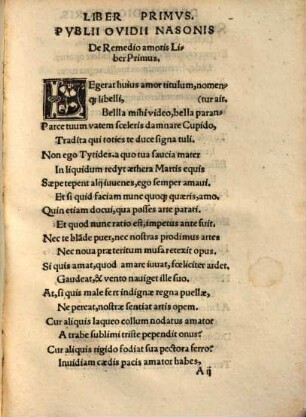 LIBER PRIMVS.
PVBLII OVIDII NASONIS
De Remedio amoris Li
ber Primus.
LEgerat huius amor titulum, nomen
q; libelli, (tur ait.
Bella mihi video, bella paran
Parce tuum vatem sceleris damnare Cupido,
Tradita qui toties te duce signa tuli.
Non ego Tyrides, a quo tua saucia mater
In liquidum redyt æthera Martis equis
Sæpe tepent alij iuuenes, ego semper amaui.
Et si quid faciam nunc quoq; quæris, amo.
Quin etiam docui, qua posses arte parari.
Et quod nunc ratio est, impetus ante fuit.
Nec te blāde puer, nec nostras prodimus artes
Nec noua præteritum musa retexit opus.
Si quis amat, quod amare iuuat, fœliciter ardet.
Gaudeat, & vento nauiget ille suo.
At, si quis male fert indignæ regna puellæ,
Ne pereat, nostræ sentiat artis opem.
Cur aliquis laqueo collum nodatus amator
A trabe sublimi triste pependit onus?
Cur aliquis rigido fodiat sua pectora ferro?
Inuidiam cædis pacis amator habes,
A ij